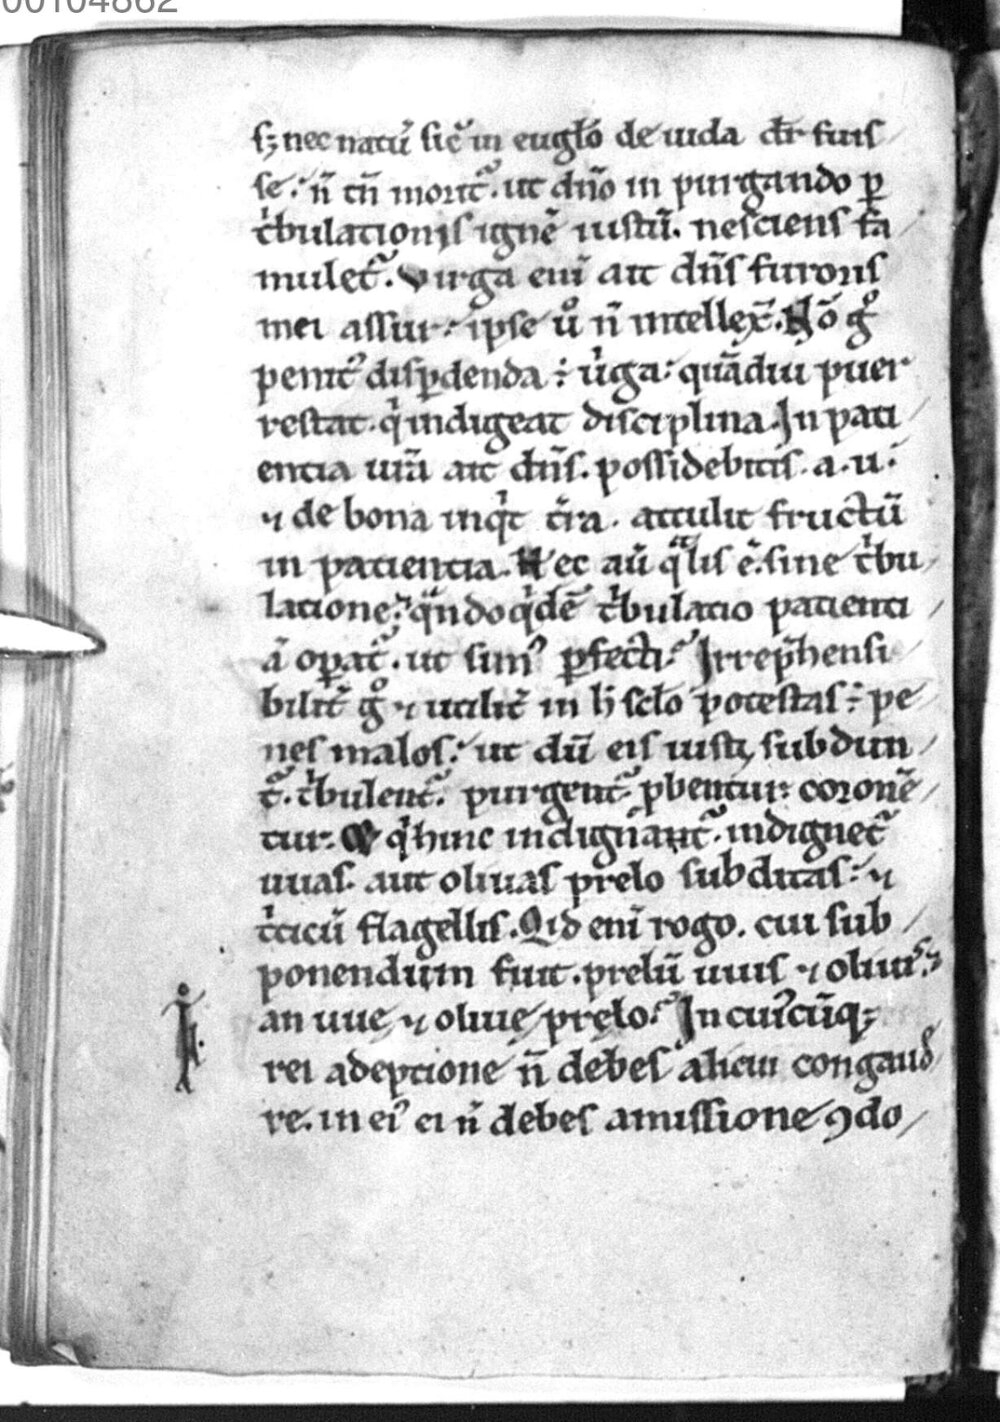 00104862
sꝫ nec natū sic̄ in eugło de iuda dr̄ fuis
se. n̄ tn̄ morit᷑. ut dn̄o in purgando ꝑ
tͥbulationis ignē iustū. nesciens fa
mulet᷑. Virga eni̅ ait dn̄s furoris
mei assur. ipse uͦ n̄ intellex̄. Nō gͦ
penitꝰ disꝑdenda ÷ uͥga. quādiu puer
restat. qͥ indigeat disciplina. In pati
entia urā ait dn̄s. possidebitis. a. u.
⁊ de bona inqͥt tr̄ra. attulit fructū
in patientia. Nec aū qͣlis ē. sine tͥbu
latione. qn̄do qͥdē tͥbulatio patienti
ā oꝑat᷑. ut simꝰ ꝑfecti. Irrep̄hensi
bilit̄ gͦ ⁊ utilit̄ in h̄ sclo potestas ÷ pe
nes malos. ut dū eis iusti subdun
t᷑. tͥbulent᷑. purgent᷑. p̄bentur. coronē
tur. Qd̄ qͥ hinc indignant᷑. indignet᷑
uuas. aut oliuas prelo subditas. ⁊
tͥticū flagellis. Qid eni̅ rogo. cui sub
ponendum fuit. prelū uuis ⁊ oliuis.
an uue ⁊ oliue prelo. In cuiꝰcūqꝫ
rei adeptione n̄ debes alicui congaud̄
re. in eiꝰ ei n̄ debes amissione ꝯdo